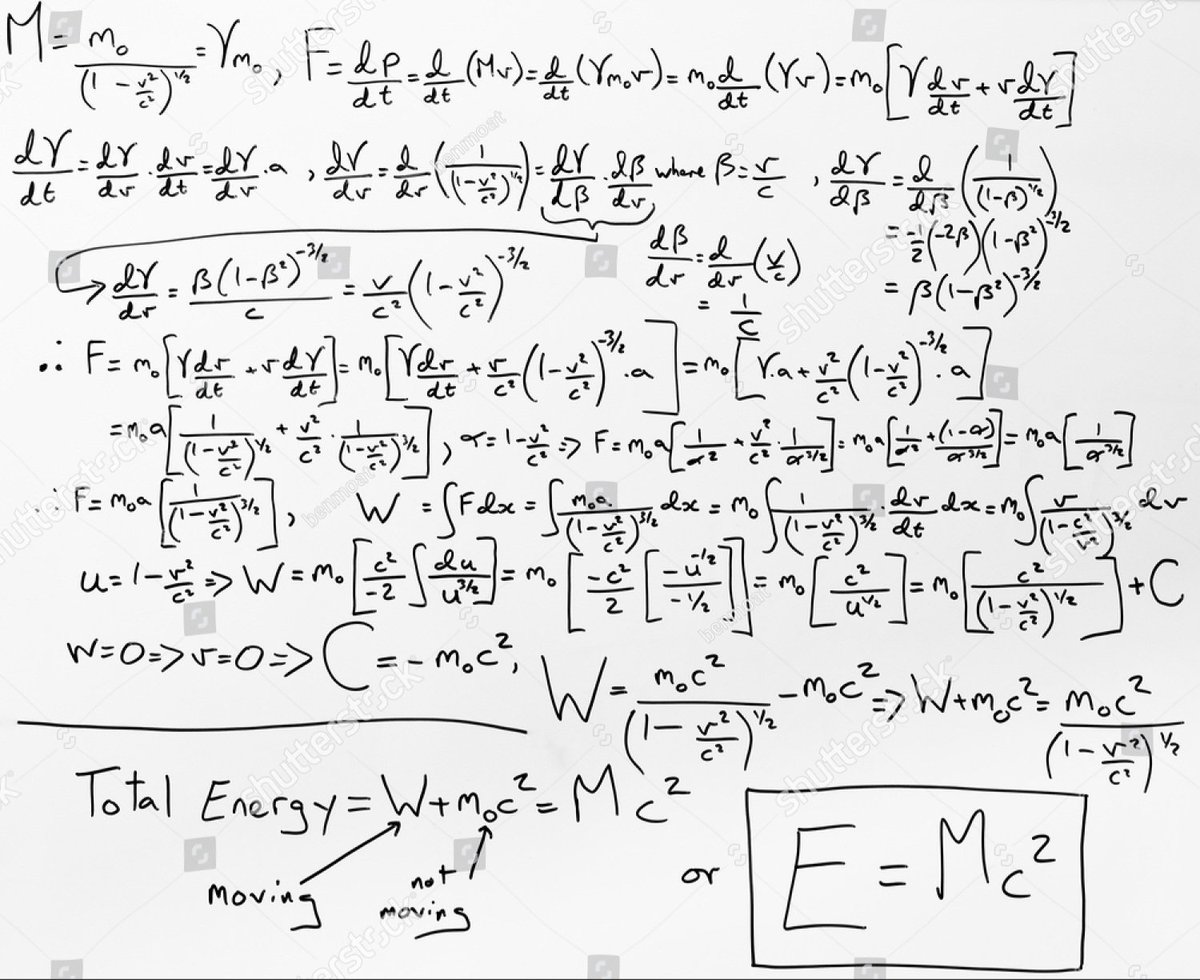 M = m₀/(1 - v²/c²)^½ = γm₀, F = dp/dt = d/dt (Mv) = d/dt (γm₀v) = m₀ d/dt (γv) = m₀[γ dv/dt + v dγ/dt]
dγ/dt = dγ/dv · dv/dt = dγ/dv · a, dγ/dv = d/dv (1/(1 - v²/c²)^½) = dγ/dβ · dβ/dv where β = v/c, dγ/dβ = d/dβ (1/(1-β)^½)
= -1/2 (-2β)(1-β²)^-3/2
→ dγ/dv = β(1-β²)^-3/2 / c = v/c² (1 - v²/c²)^-3/2 dβ/dv = d/dv (v/c) = β(1-β²)^-3/2
= 1/c
∴ F = m₀[γ dv/dt + v dγ/dt] = m₀[γ dv/dt + v · v/c² (1 - v²/c²)^-3/2 · a] = m₀[γ·a + v²/c² (1 - v²/c²)^-3/2 · a]
= m₀a[1/(1 - v²/c²)^½ + v²/c² · 1/(1 - v²/c²)^3/2], α = 1 - v²/c² => F = m₀a[1/α^½ + v²/c² · 1/α^3/2] = m₀a[1/α^½ + (1-α)/α^3/2] = m₀a[1/α^3/2]
∴ F = m₀a[1/(1 - v²/c²)^3/2], W = ∫F dx = ∫ m₀a/(1 - v²/c²)^3/2 dx = m₀∫ 1/(1 - v²/c²)^3/2 · dv/dt dx = m₀∫ v/(1 - c²/v²)^3/2 dv
u = 1 - v²/c² => W = m₀[c²/-2 ∫ du/u^3/2] = m₀[-c²/2 [-u^-1/2 / -1/2]] = m₀[c²/u^½] = m₀[c²/(1 - v²/c²)^½] + C
W=0 => v=0 => C = - m₀c², W = m₀c²/(1 - v²/c²)^½ - m₀c² => W + m₀c² = m₀c²/(1 - v²/c²)^½
Total Energy = W + m₀c² = Mc²
moving
not moving
or E = Mc²
shutterstock
benmoat